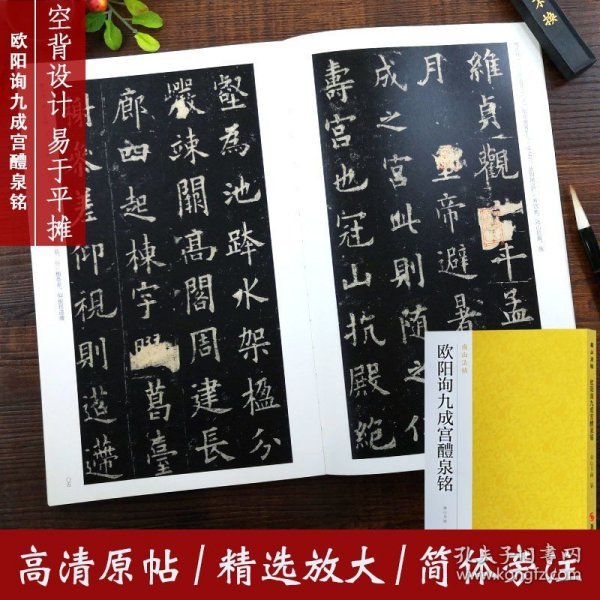 空背设计 易于平摊
欧阳询九成宫醴泉铭
維貞觀年孟
月帝避暑
成之宮此則随之仁
壽宮也冠山抗殿絶
壑為池跨水架楹分
巖竦闕高閣周建長
廊四起棟宇膠葛臺
榭參差仰視則迢遰
南山法帖
欧阳询九成宫醴泉铭
南山法帖
欧阳询九成宫醴泉铭
高清原帖/精选放大/简体旁注
孔夫子旧书网
www.kongfz.com